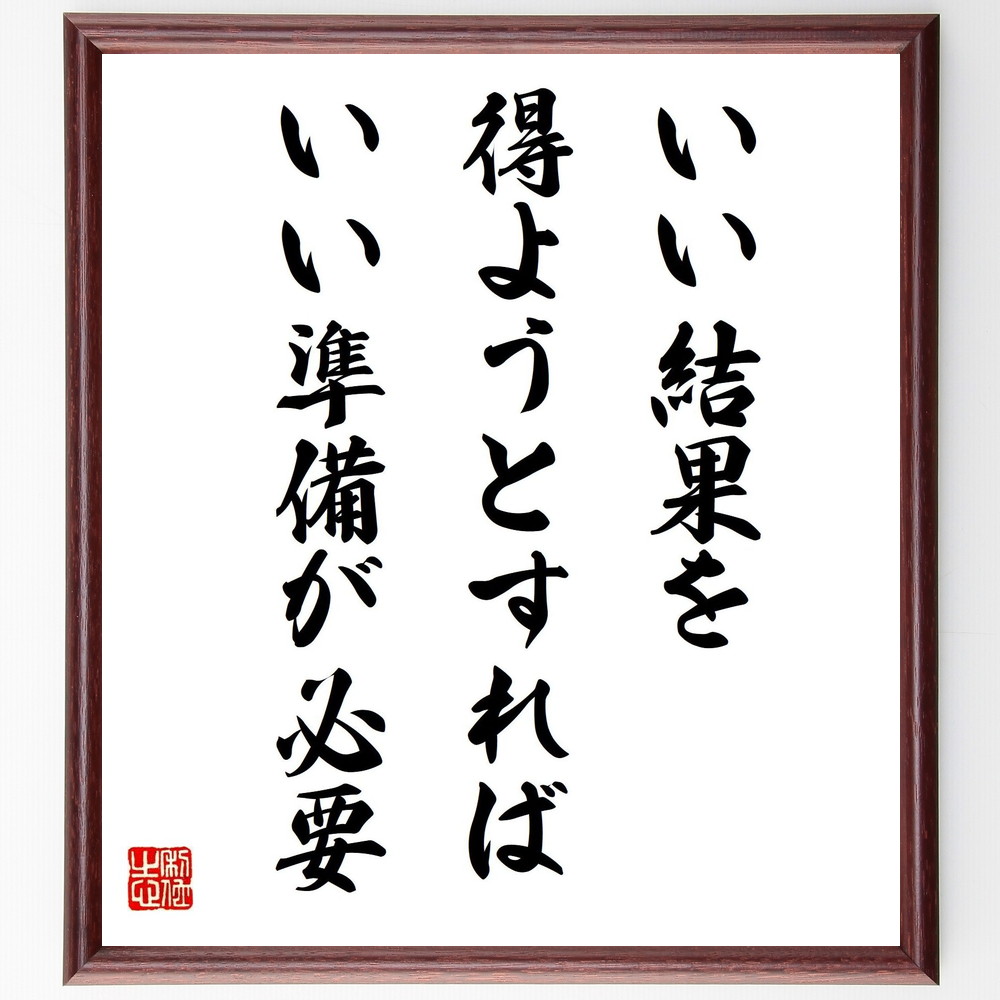 いい結果を
得ようとすれば
いい準備が必要